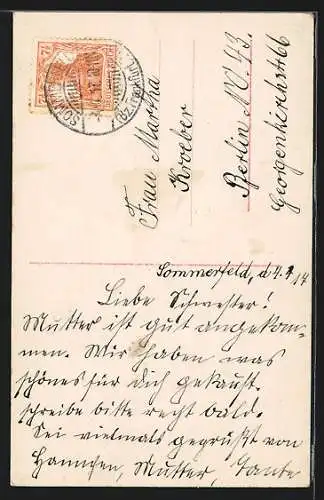 Frau Martha
Kroeber
Berlin NO. 43.
Georgenkirchstr 66
Sommerfeld, d 4. 4 17
Liebe Schwester!
Mutter ist gut angekom-
men. Wir haben was
schönes für dich gekauft.
schreibe bitte recht bald.
Sei vielmals gegrüßt von
Hannchen, Mutter, Tante